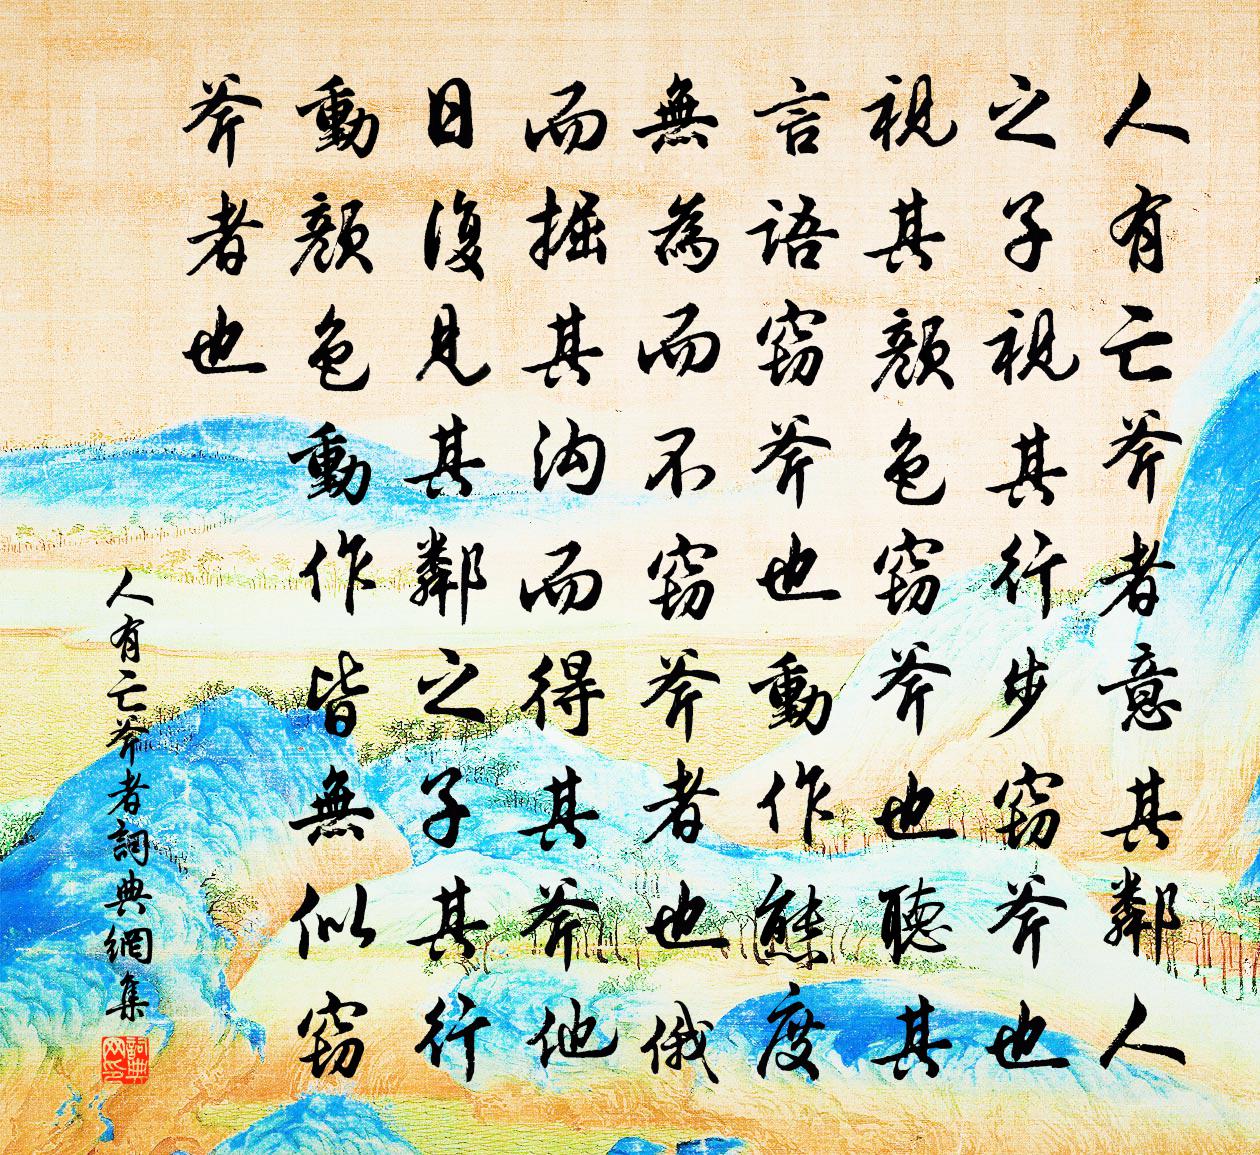 人有亡斧者意其鄰人
之子視其行步窃斧也
視其顏色窃斧也聽其
言語窃斧也動作態度
無為而不窃斧者也俄
而掘其沟而得其斧他
日復見其鄰之子其行
動顏色動作皆無似窃
斧者也
人有亡斧者詞典網集
詞典
网印